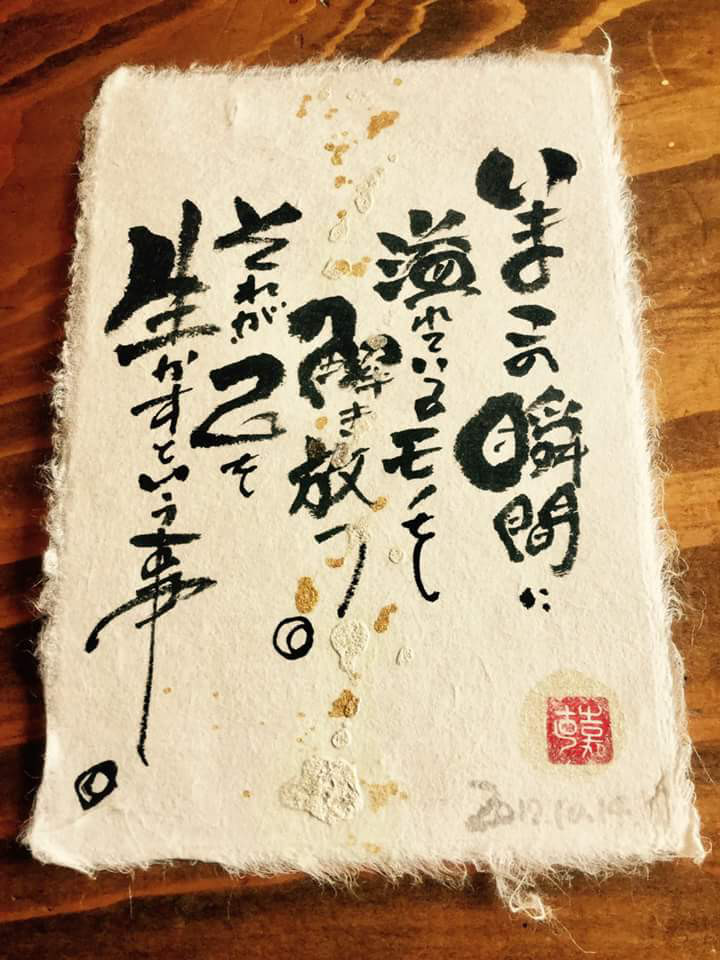 いまこの瞬間に
溢れているモノを
解き放つ。
それが己を
生かすという事。
2017.10.14